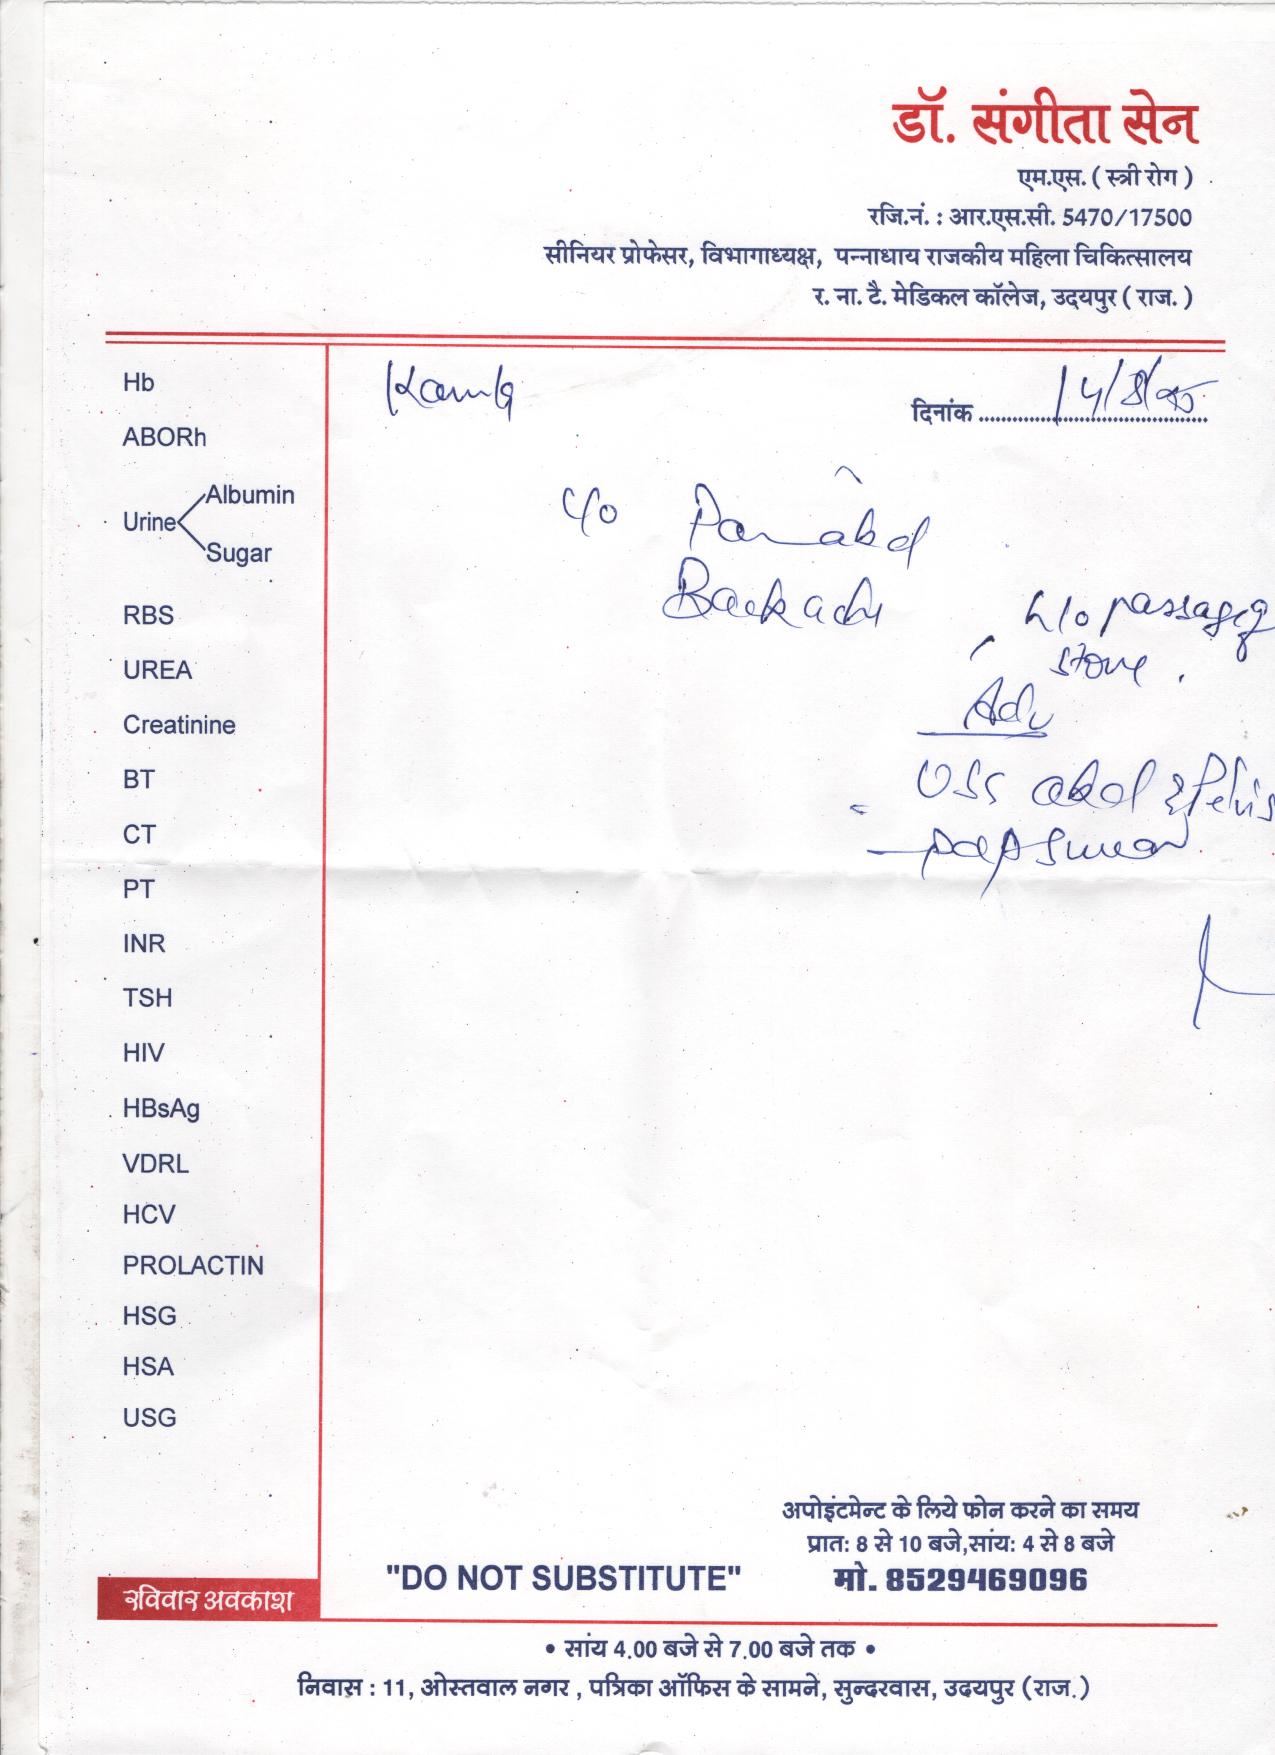 डॉ. संगीता सेन
एम.एस. ( स्त्री रोग )
रजि.नं. : आर.एस.सी. 5470/17500
सीनियर प्रोफेसर, विभागाध्यक्ष, पन्नाधाय राजकीय महिला चिकित्सालय
र. ना. टै. मेडिकल कॉलेज, उदयपुर ( राज. )
दिनांक
c/o Pain abd
Backache
h/o passage of
stone.
Adv
USG abd & Pelvis
- pap smear
Hb
ABORh
Urine
Albumin
Sugar
RBS
UREA
Creatinine
BT
CT
PT
INR
TSH
HIV
HBsAg
VDRL
HCV
PROLACTIN
HSG
HSA
USG
अपोइंटमेन्ट के लिये फोन करने का समय
प्रात: 8 से 10 बजे,सांय: 4 से 8 बजे
"DO NOT SUBSTITUTE"
मो. 8529469096
रविवार अवकाश
• सांय 4.00 बजे से 7.00 बजे तक •
निवास : 11, ओस्तवाल नगर , पत्रिका ऑफिस के सामने, सुन्दरवास, उदयपुर (राज.)